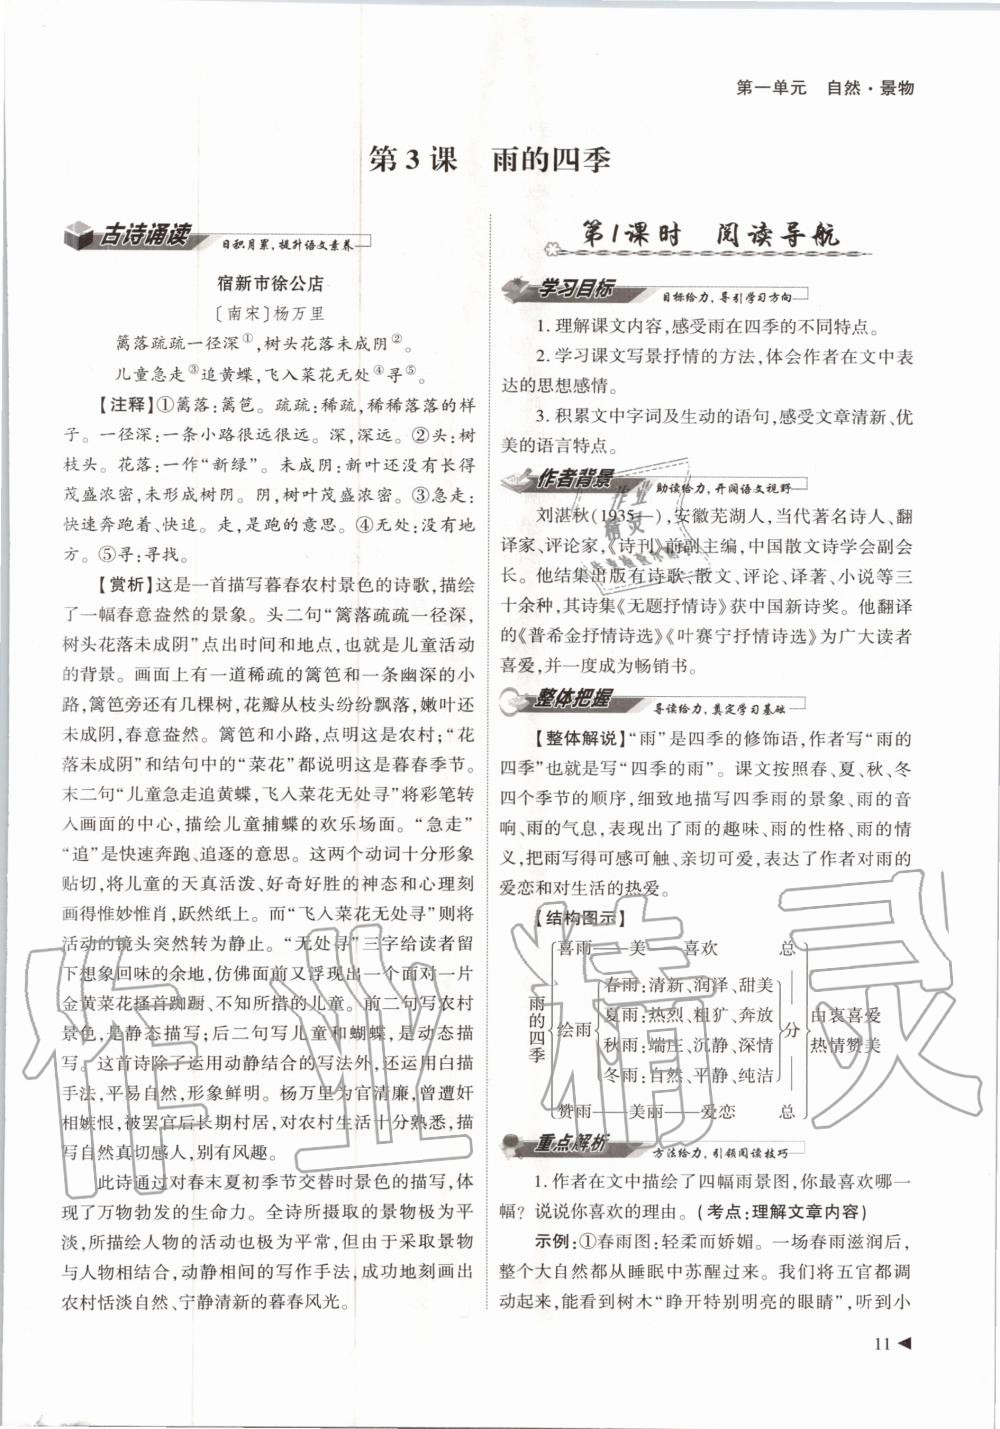 第一单元　自然·景物
第3课　雨的四季
古诗诵读　日积月累，提升语文素养
宿新市徐公店
〔南宋〕杨万里
篱落疏疏一径深①，树头花落未成阴②。
儿童急走③追黄蝶，飞入菜花无处④寻⑤。
【注释】①篱落：篱笆。疏疏：稀疏，稀稀落落的样
子。一径深：一条小路很远很远。深，深远。②头：树
枝头。花落：一作“新绿”。未成阴：新叶还没有长得
茂盛浓密，未形成树阴。阴，树叶茂盛浓密。③急走：
快速奔跑、快追。走，是跑的意思。④无处：没有地
方。⑤寻：寻找。
【赏析】这是一首描写暮春农村景色的诗歌，描绘
了一幅春意盎然的景象。头二句“篱落疏疏一径深，
树头花落未成阴”点出时间和地点，也就是儿童活动
的背景。画面上有一道稀疏的篱笆和一条幽深的小
路，篱笆旁还有几棵树，花瓣从枝头纷纷飘落，嫩叶还
未成阴，春意盎然。篱笆和小路，点明这是农村；“花
落未成阴”和结句中的“菜花”都说明这是暮春季节。
末二句“儿童急走追黄蝶，飞入菜花无处寻”将彩笔转
入画面的中心，描绘儿童捕蝶的欢乐场面。“急走”
“追”是快速奔跑、追逐的意思。这两个动词十分形象
贴切，将儿童的天真活泼、好奇好胜的神态和心理刻
画得惟妙惟肖，跃然纸上。而“飞入菜花无处寻”则将
活动的镜头突然转为静止。“无处寻”三字给读者留
下想象回味的余地，仿佛面前又浮现出一个面对一片
金黄菜花搔首踟蹰、不知所措的儿童。前二句写农村
景色，是静态描写；后二句写儿童和蝴蝶，是动态描
写。这首诗除了运用动静结合的写法外，还运用白描
手法，平易自然，形象鲜明。杨万里为官清廉，曾遭奸
相嫉恨，被罢官后长期村居，对农村生活十分熟悉，描
写自然真切感人，别有风趣。
此诗通过对春末夏初季节交替时景色的描写，体
现了万物勃发的生命力。全诗所摄取的景物极为平
淡，所描绘人物的活动也极为平常，但由于采取景物
与人物相结合，动静相间的写作手法，成功地刻画出
农村恬淡自然、宁静清新的暮春风光。
第1课时　阅读导航
学习目标　目标给力，导引学习方向
1. 理解课文内容，感受雨在四季的不同特点。
2. 学习课文写景抒情的方法，体会作者在文中表
达的思想感情。
3. 积累文中字词及生动的语句，感受文章清新、优
美的语言特点。
作者背景　助读给力，开阔语文视野
刘湛秋(1935—)，安徽芜湖人，当代著名诗人、翻
译家、评论家，《诗刊》前副主编，中国散文诗学会副会
长。他结集出版有诗歌、散文、评论、译著、小说等三
十余种，其诗集《无题抒情诗》获中国新诗奖。他翻译
的《普希金抒情诗选》《叶赛宁抒情诗选》为广大读者
喜爱，并一度成为畅销书。
整体把握　导读给力，奠定学习基础
【整体解说】“雨”是四季的修饰语，作者写“雨的
四季”也就是写“四季的雨”。课文按照春、夏、秋、冬
四个季节的顺序，细致地描写四季雨的景象、雨的音
响、雨的气息，表现出了雨的趣味、雨的性格、雨的情
义，把雨写得可感可触、亲切可爱，表达了作者对雨的
爱恋和对生活的热爱。
【结构图示】
雨的四季
喜雨——美——喜欢　总
绘雨
春雨：清新、润泽、甜美
夏雨：热烈、粗犷、奔放
秋雨：端庄、沉静、深情
冬雨：自然、平静、纯洁
分
赞雨——美丽——爱恋　总
由衷喜爱
热情赞美
重点解析　方法给力，引领阅读技巧
1. 作者在文中描绘了四幅雨景图，你最喜欢哪一
幅？说说你喜欢的理由。(考点：理解文章内容)
示例：①春雨图：轻柔而娇媚。一场春雨滋润后，
整个大自然都从睡眠中苏醒过来。我们将五官都调
动起来，能看到树木“睁开特别明亮的眼睛”，听到小
11
作业精灵
作业
精灵